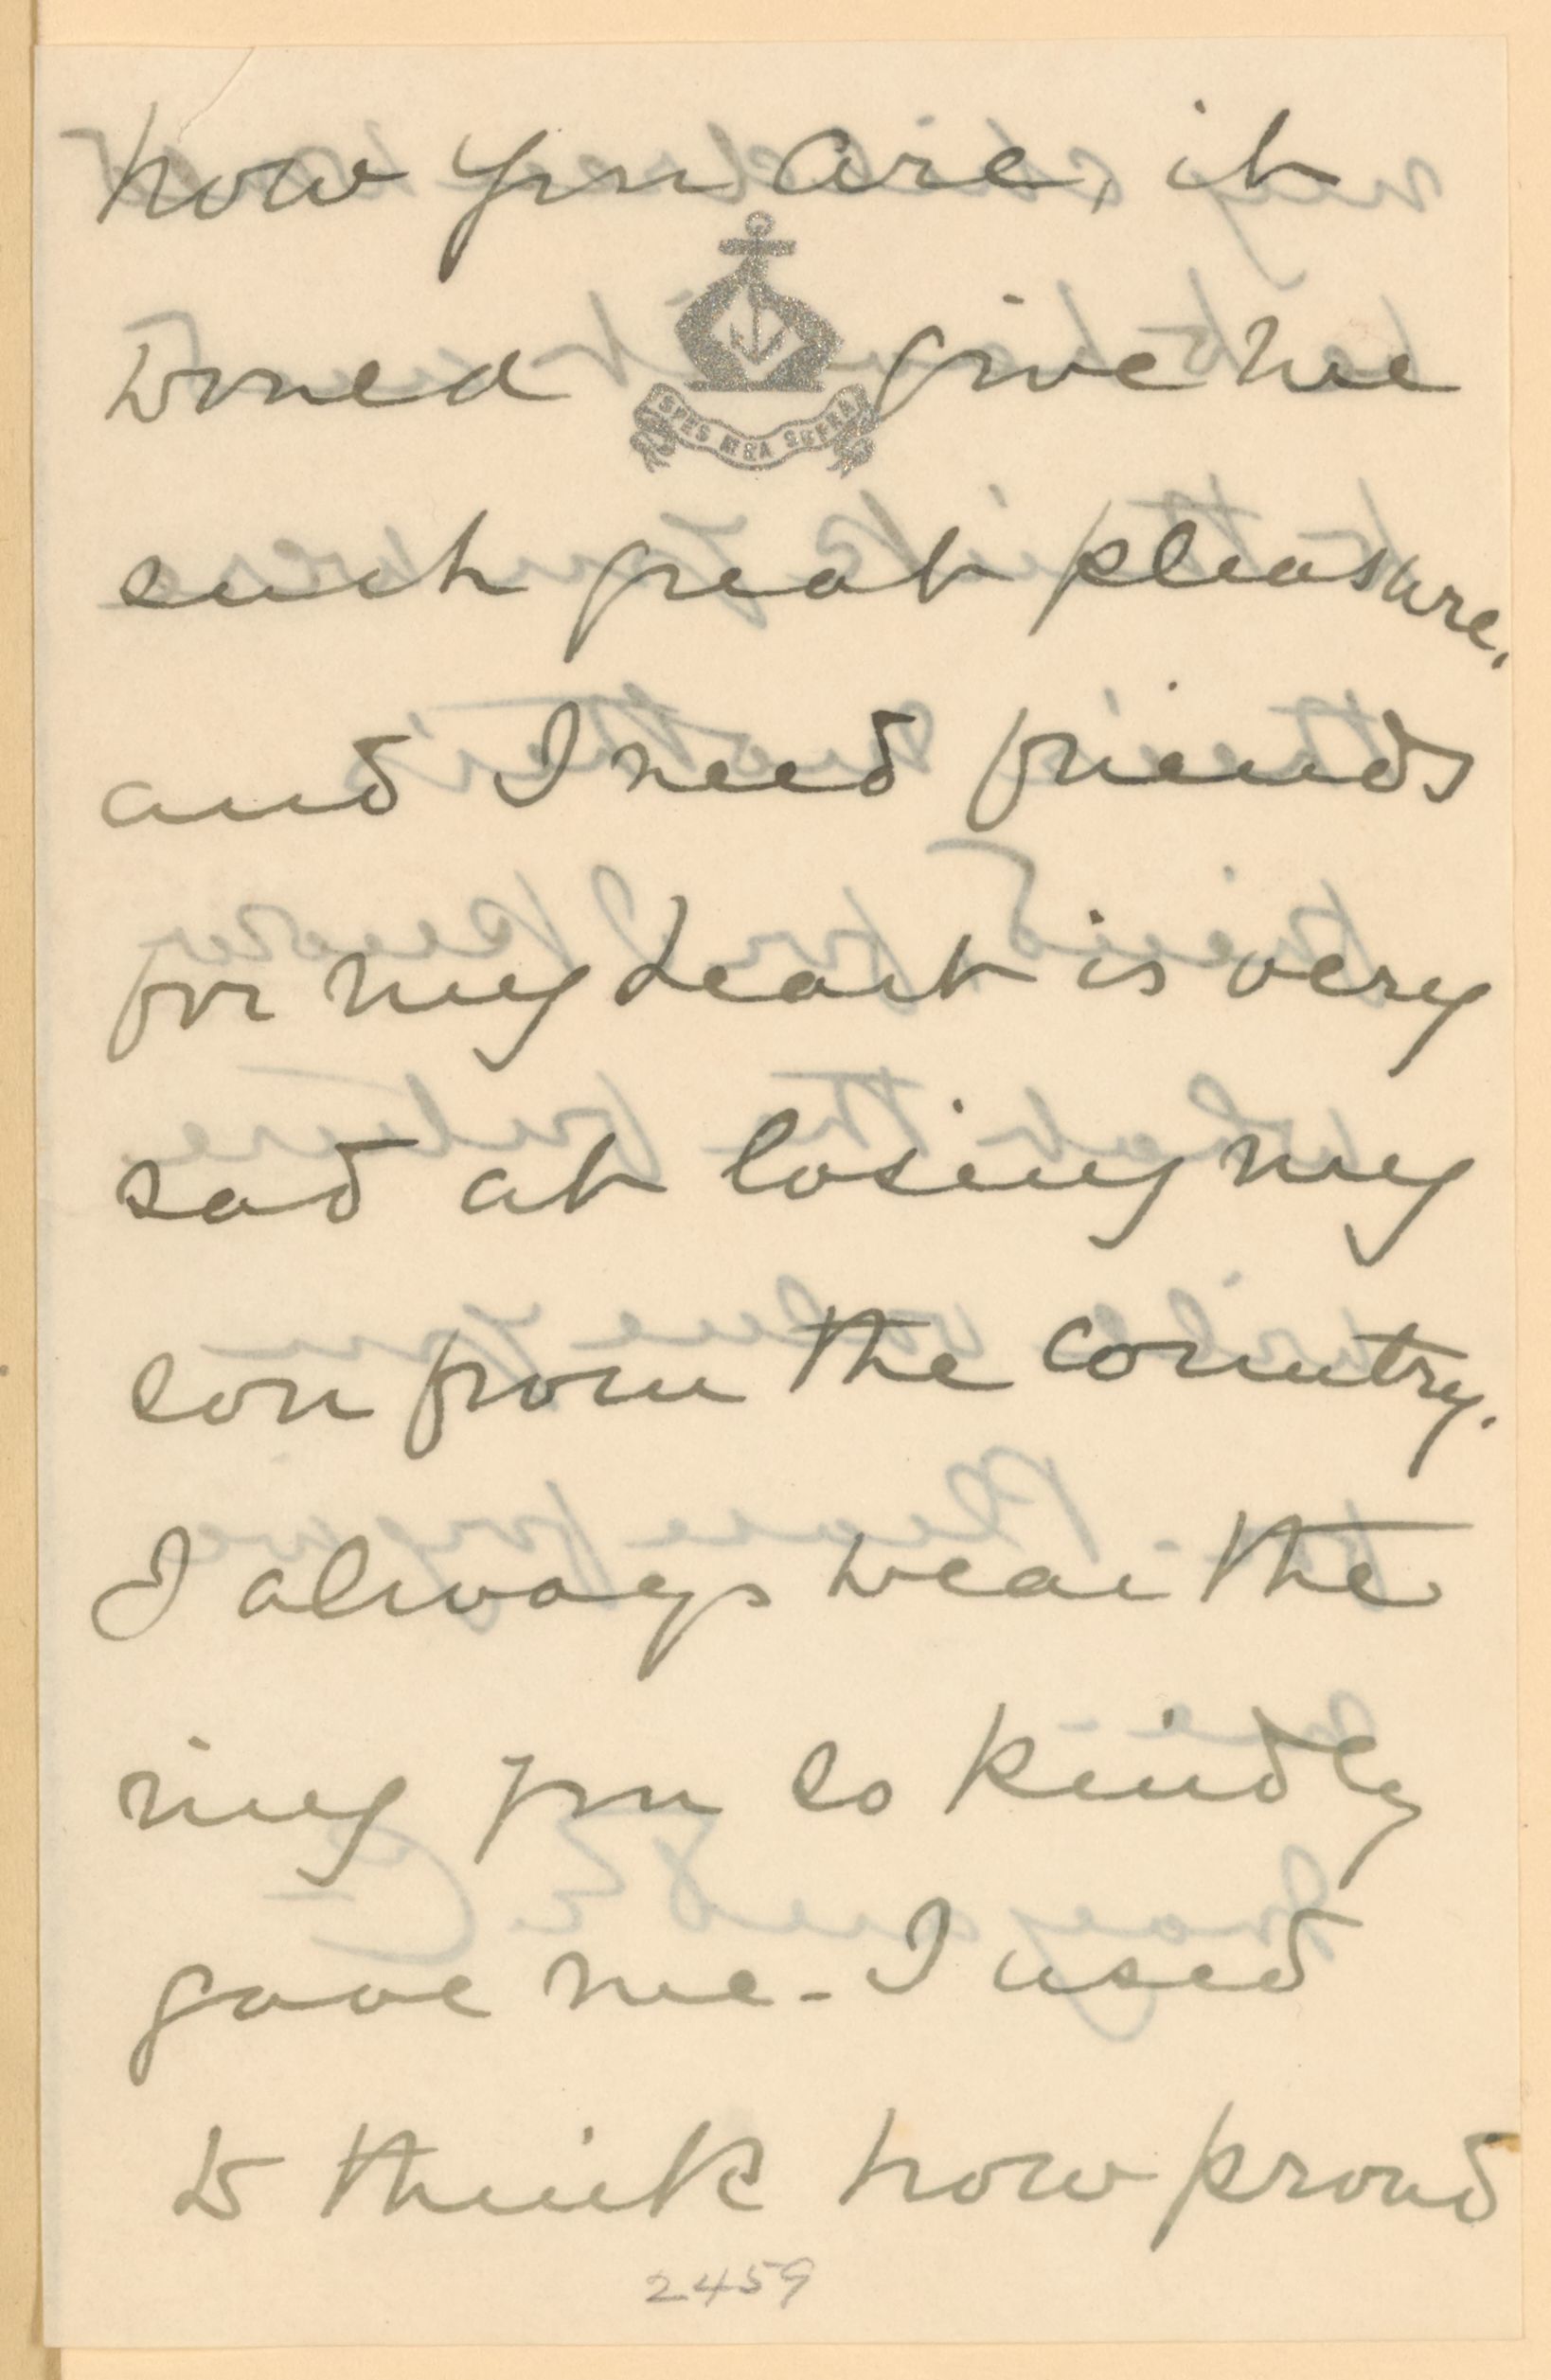 how you are, it
would give me
SPES MEA SUPRA
such great pleasure.
and I need friends
for my heart is very
sad at losing my
son from the country.
I always wear the
ring you so kindly
gave me - I used
to think how proud
2459